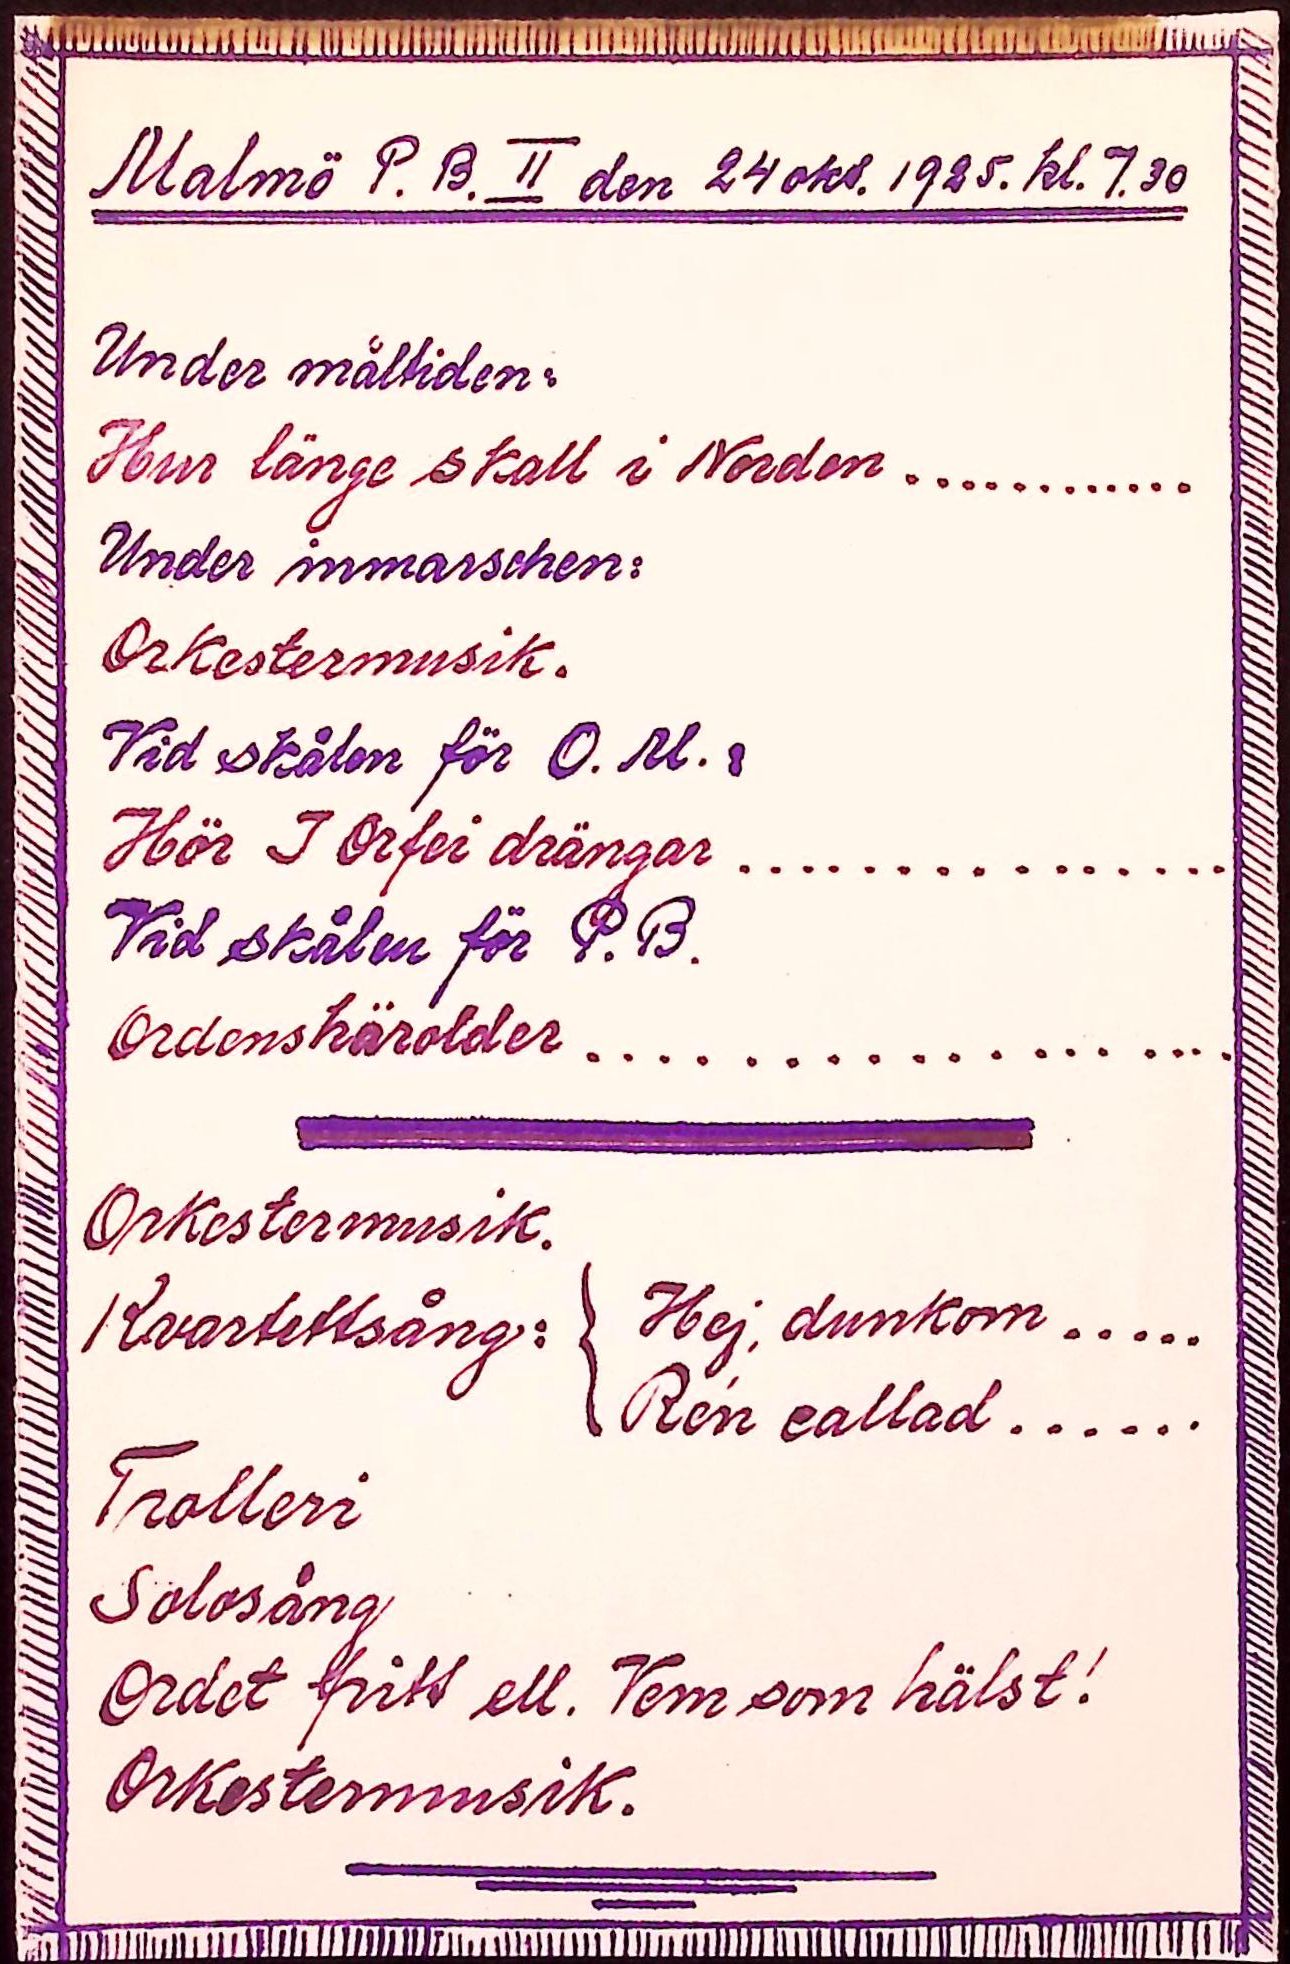 Malmö P. B. II den 24 okt. 1925. kl. 7.30
Under måltiden:
Hur länge skall i Norden . . . . . . . . . . . .
Under inmarschen:
Orkestermusik.
Vid skålen för O. M. :
Hör I Orfei drängar . . . . . . . . . . . . . . .
Vid skålen för P. B.
Ordenshärolder . . . . . . . . . . . . . . .
Orkestermusik.
Kvartettsång: { Hej, dunkom . . . . .
Rén callad . . . . . .
Trolleri
Solosång
Ordet fritt ell. Vem som hälst!
Orkestermusik.